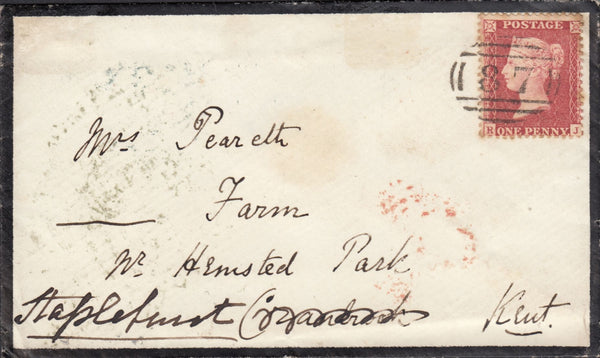 POSTAGE
87
B ONE PENNY J
Mrs Peareth
Farm
Nr Hemsted Park
Staplehurst Kent.